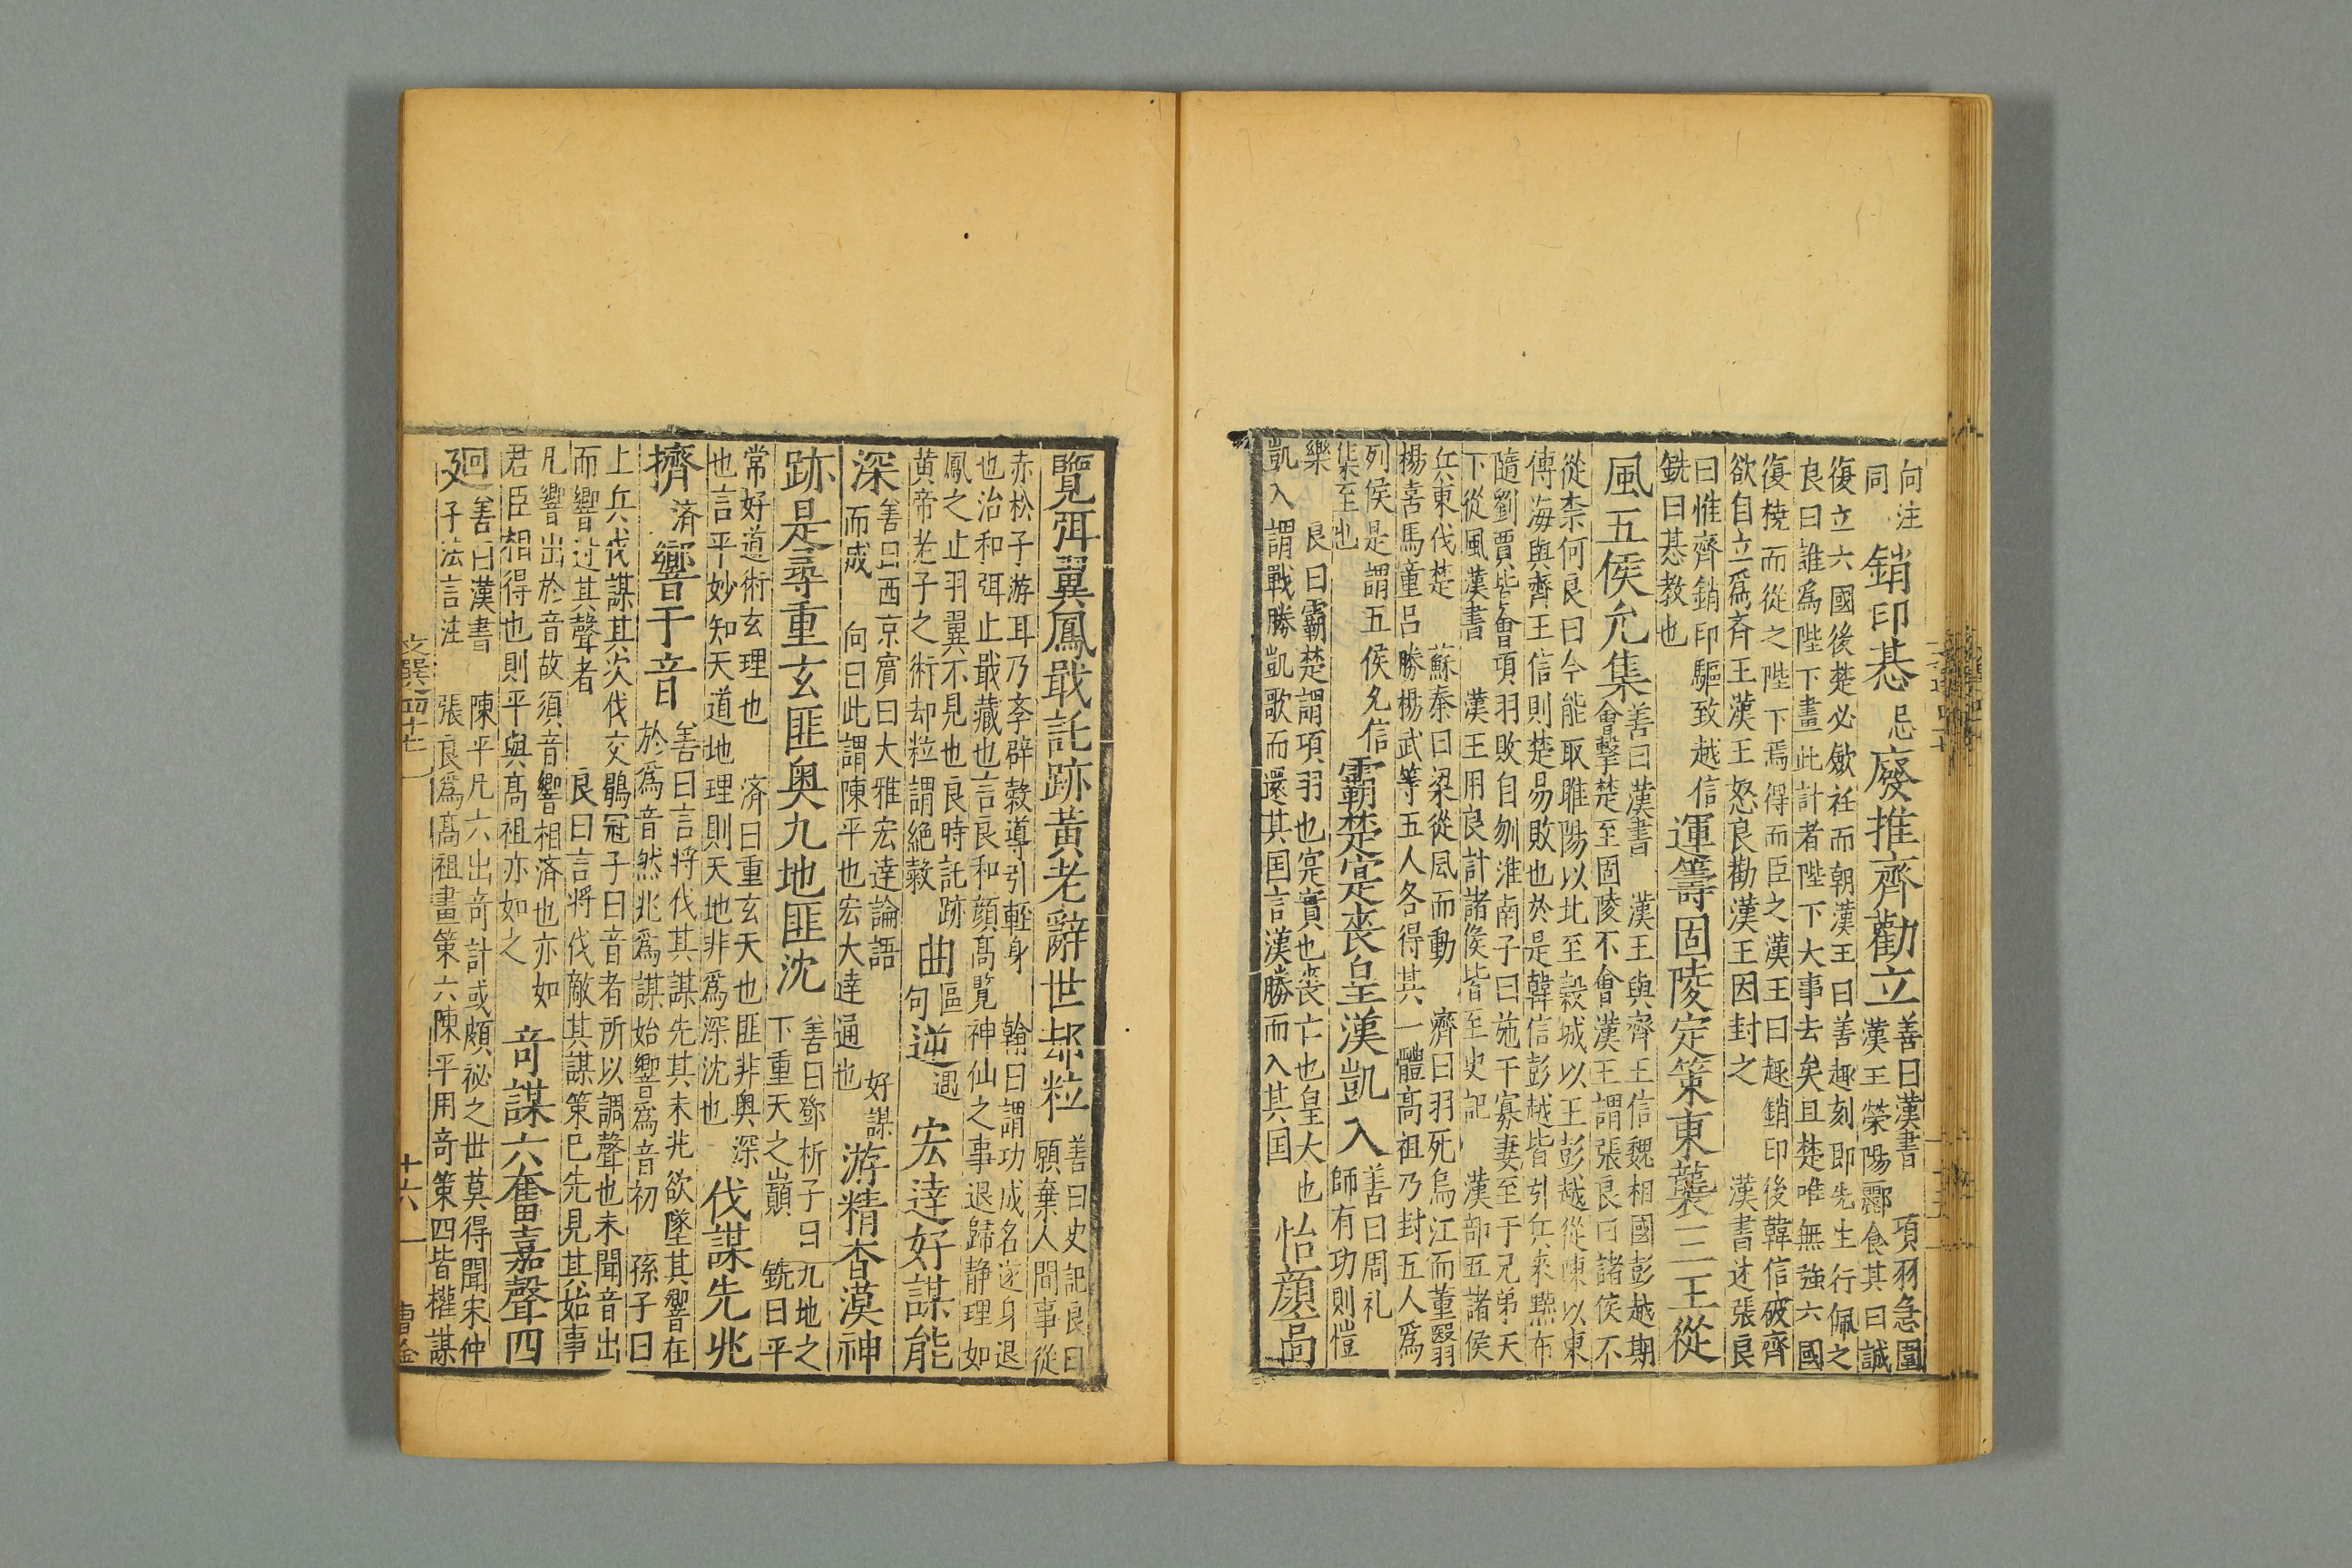 向注
同
銷印惎
忌
廢推齊勸立
善曰漢書　項羽急圍
漢王滎陽酈食其曰誠
復立六國後楚必斂衽而朝漢王曰善趣刻即先生行佩之
良曰誰爲陛下畫此計者陛下大事去矣且楚唯無強六國
復橈而從之陛下焉得而臣之漢王曰趣銷印後韓信破齊
欲自立爲斉王漢王怒良勸漢王因封之　漢書述張良
曰惟齊銷印驅致越信
銑曰惎教也
運籌固陵定策東襲三王從
風五侯允集
善曰漢書　漢王與齊王信魏相國彭越期
會擊楚至固陵不會漢王謂張良曰諸侯不
從柰何良曰今能取睢陽以北至穀城以王彭越從陳以東
傅海與齊王信則楚易敗也於是韓信彭越皆引兵來黥布
隨劉賈皆會項羽敗自刎淮南子曰施于寡妻至于兄弟天
下從風漢書　漢王用良計諸侯皆至史記　漢部五諸侯
兵東伐楚　蘇秦曰梁從風而動　濟曰羽死烏江而董翳
楊喜馬童呂勝楊武等五人各得其一體高祖乃封五人爲
列侯是謂五侯允信
集至也
霸楚寔喪皇漢凱入
善曰周礼
師有功則愷
樂　良曰霸楚謂項羽也寔實也喪亡也皇大也
凱入謂戰勝凱歌而還其国言漢勝而入其国
怡顏高
覽弭翼鳳戢託跡黃老辭世却粒
善曰史記良曰
願棄人間事從
赤松子游耳乃斈辟穀導引輕身　翰曰謂功成名遂身退
也治和弭止戢藏也言良和顔高覧神仙之事退歸静理如
鳳之止羽翼不見也良時託跡
黄帝老子之術却粒謂絶穀
曲
區
句
逆
遇
宏達好謀能
深
善曰西京賔曰大雅宏達論語　好謀
而成　向曰此謂陳平也宏大達通也
游精杳漠神
跡是尋重玄匪奥九地匪沈
善曰鄧析子曰九地之
下重天之巔　銑曰平
常好道術玄理也　済曰重玄天也匪非奥深
也言平妙知天道地理則天地非爲深沈也
伐謀先兆
擠
済
響于音
善曰言将伐其謀先其未兆欲墜其響在
於爲音然兆爲謀始響爲音初　孫子曰
上兵伐謀其次伐交鶡冠子曰音者所以調聲也未聞音出
而響过其聲者　良曰言将伐敵其謀策已先見其始事
凡響出於音故須音響相済也亦如
君臣相得也則平與髙祖亦如之
竒謀六奮嘉聲四
廻
善曰漢書　陳平凡六出竒計或頗祕之世莫得聞宋仲
子法言注　張良爲髙祖畫策六陳平用竒策四皆權謀
文選四十七
十六